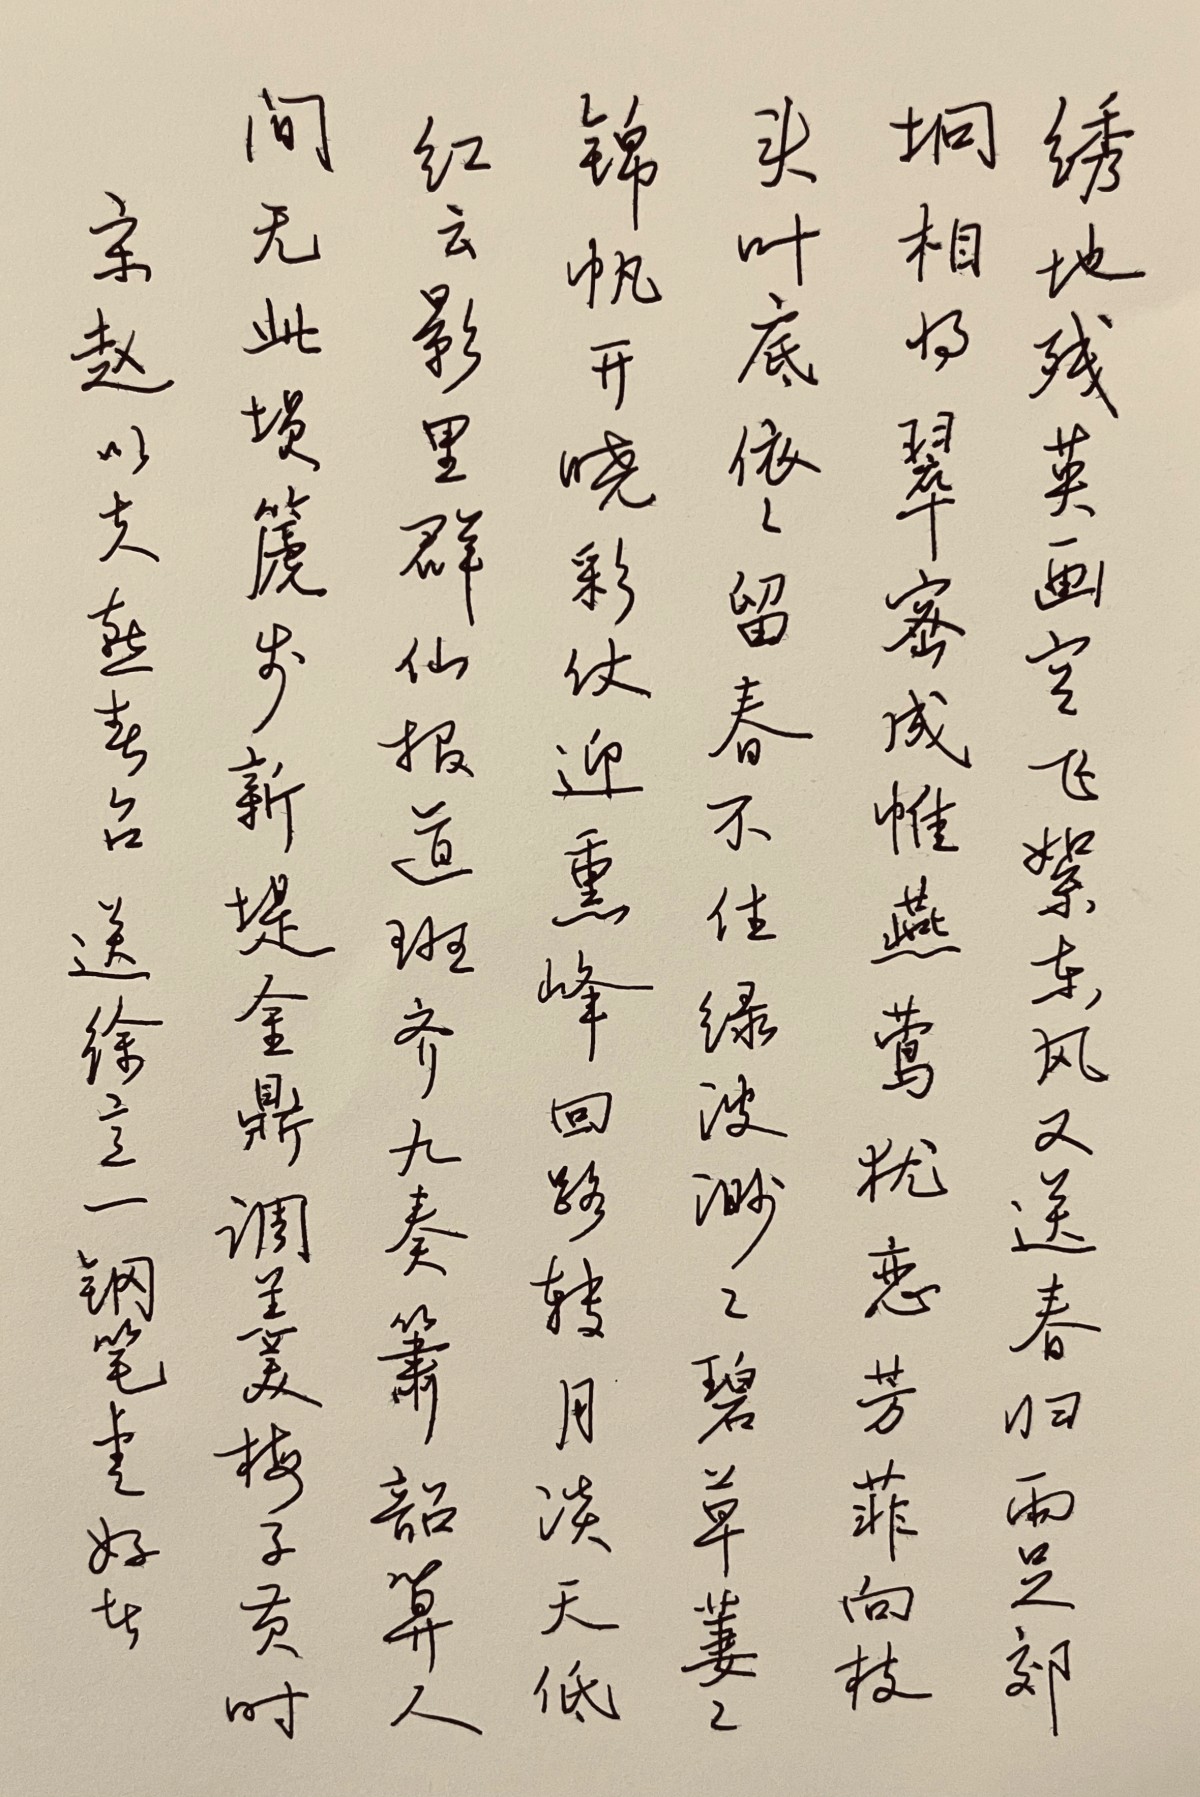 绣地残英画空飞絮东风又送春归雨足郊
坰相将翠密成帷燕莺犹恋芳菲向枝
头叶底依〻留春不住绿波渺〻碧草萋〻
锦帆开晓彩仗迎熏峰回路转月淡天低
红云影里群仙报道班齐九奏箫韶算人
间无此埙篪步新堤金鼎调羹梅子黄时
宋赵以夫燕春台送徐立一钢笔爱好者